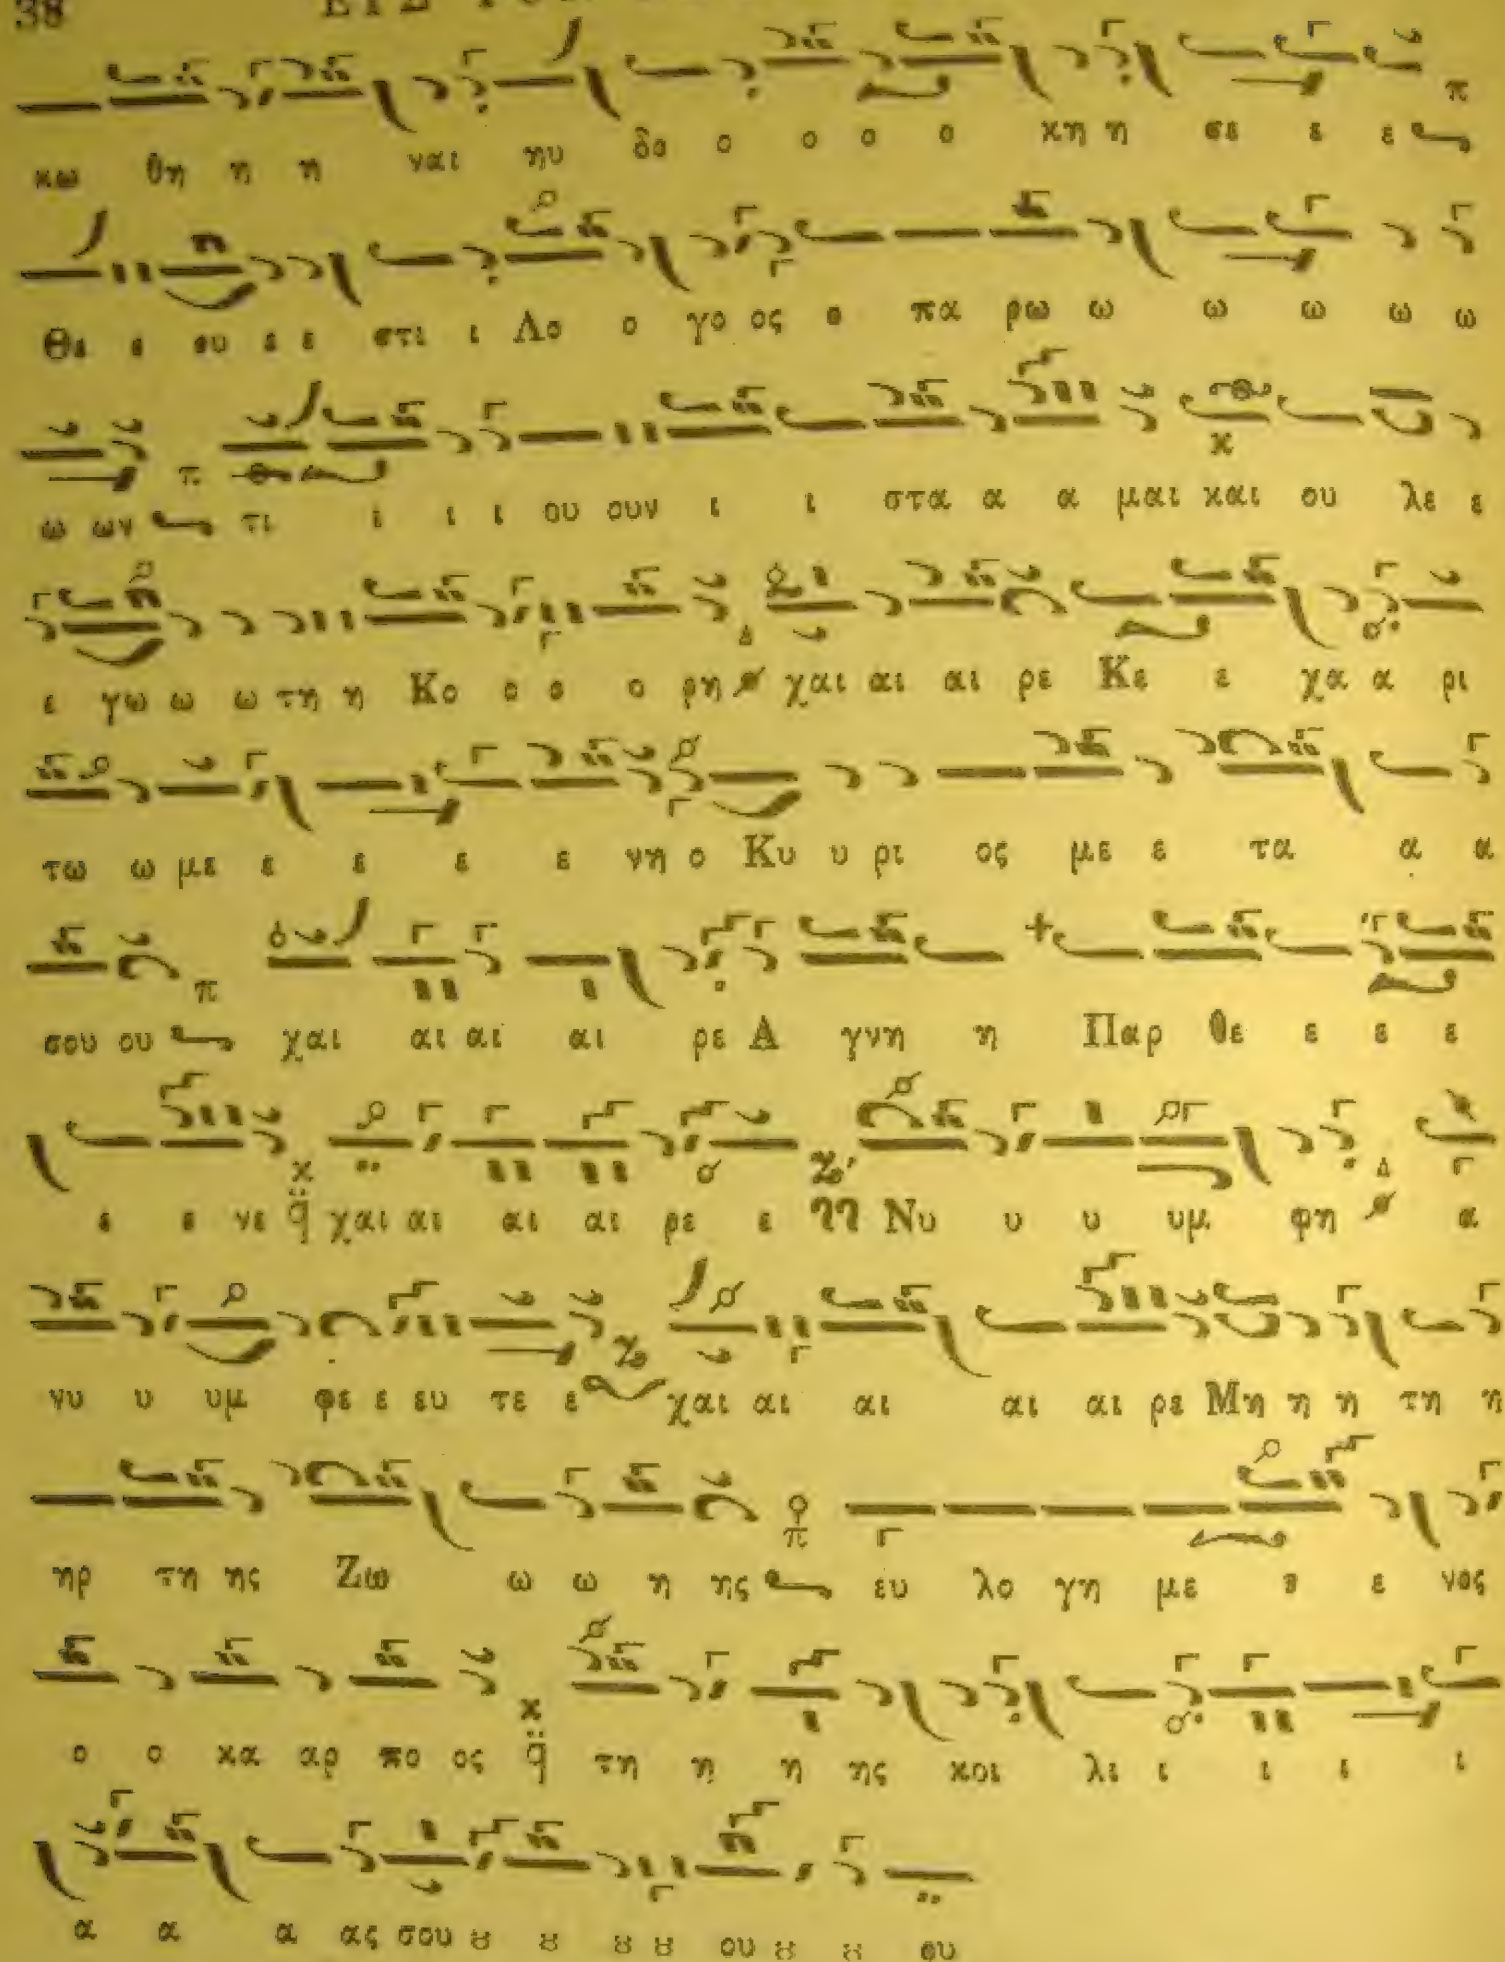 38
κω θη η η ναι ηυ δο ο ο ο ο κη η σε ε ε π
Θε ε ου ε ε στι ι Λο ο γο ος ο πα ρω ω ω ω ω ω
ω ων π τι ι ι ι ου ουν ι ι στα α α μαι και ου λε ε
ε γω ω ω τη η Κο ο ο ο ρη χαι αι αι ρε Κε ε χα α ρι
τω ω με ε ε ε ε νη ο Κυ υ ρι ος με ε τα α α
σου ου π χαι αι αι αι ρε Α γνη η Παρ θε ε ε ε
ε ε νε χαι αι αι αι ρε ε Νυ υ υ υμ φη α
νυ υ υμ φε ε ευ τε ε χαι αι αι αι αι ρε Μη η η τη η
ηρ τη ης Ζω ω ω η ης π ευ λο γη με ε ε νος
ο ο κα αρ πο ος τη η η ης κοι λι ι ι ι ι
α α α ας σου ȣ ȣ ȣ ȣ ου ȣ ȣ ου